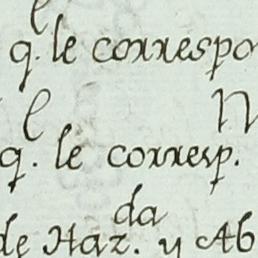 q. le correspo
l
q. le corresp.
da
de Haz. y Ab